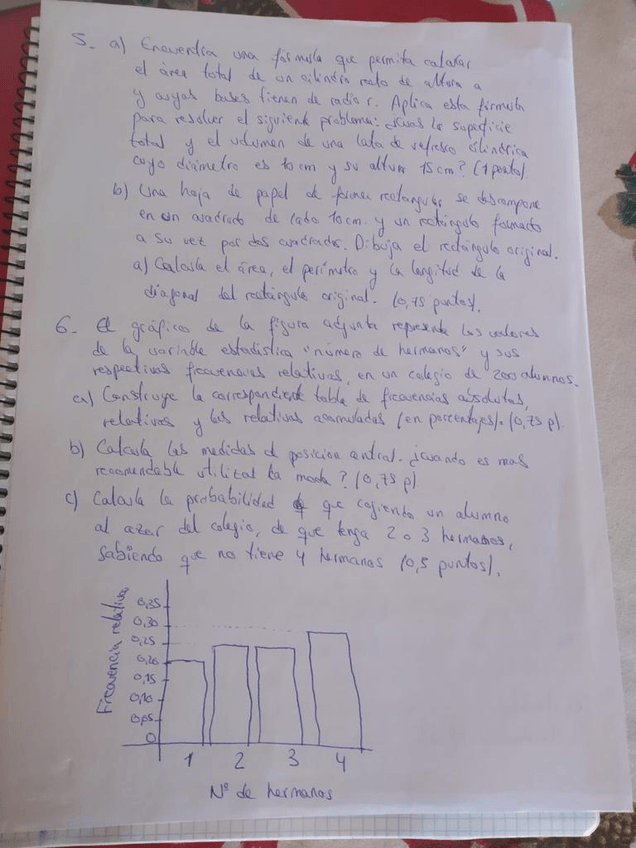 5- a) Encuentra una fórmula que permita calcular
el área total de un cilindro recto de altura a
y cuyas bases tienen de radio r. Aplica esta fórmula
para resolver el siguiente problema: ¿cuál es la superficie
total y el volumen de una lata de refresco cilíndrica
cuyo diámetro es 10 cm y su altura 15 cm? (1 punto).
b) Una hoja de papel de forma rectangular se descompone
en un cuadrado de lado 10 cm. y un rectángulo formado
a su vez por dos cuadrados. Dibuja el rectángulo original.
a) Calcula el área, el perímetro y la longitud de la
diagonal del rectángulo original. (0,75 puntos).
6- El gráfico de la figura adjunta representa los valores
de la variable estadística "número de hermanos" y sus
respectivas frecuencias relativas, en un colegio de 200 alumnos.
a) Construye la correspondiente tabla de frecuencias absolutas,
relativas y las relativas acumuladas (en porcentajes). (0,75 p).
b) Calcula las medidas de posición central. ¿cuando es mas
recomendable utilizar la moda? (0,75 p)
c) Calcula la probabilidad de que cogiendo un alumno
al azar del colegio, de que tenga 2 o 3 hermanos,
sabiendo que no tiene 4 hermanos (0,5 puntos).
Frecuencia relativa
0,35
0,30
0,25
0,20
0,15
0,10
0,05
0
1 2 3 4
Nº de hermanos